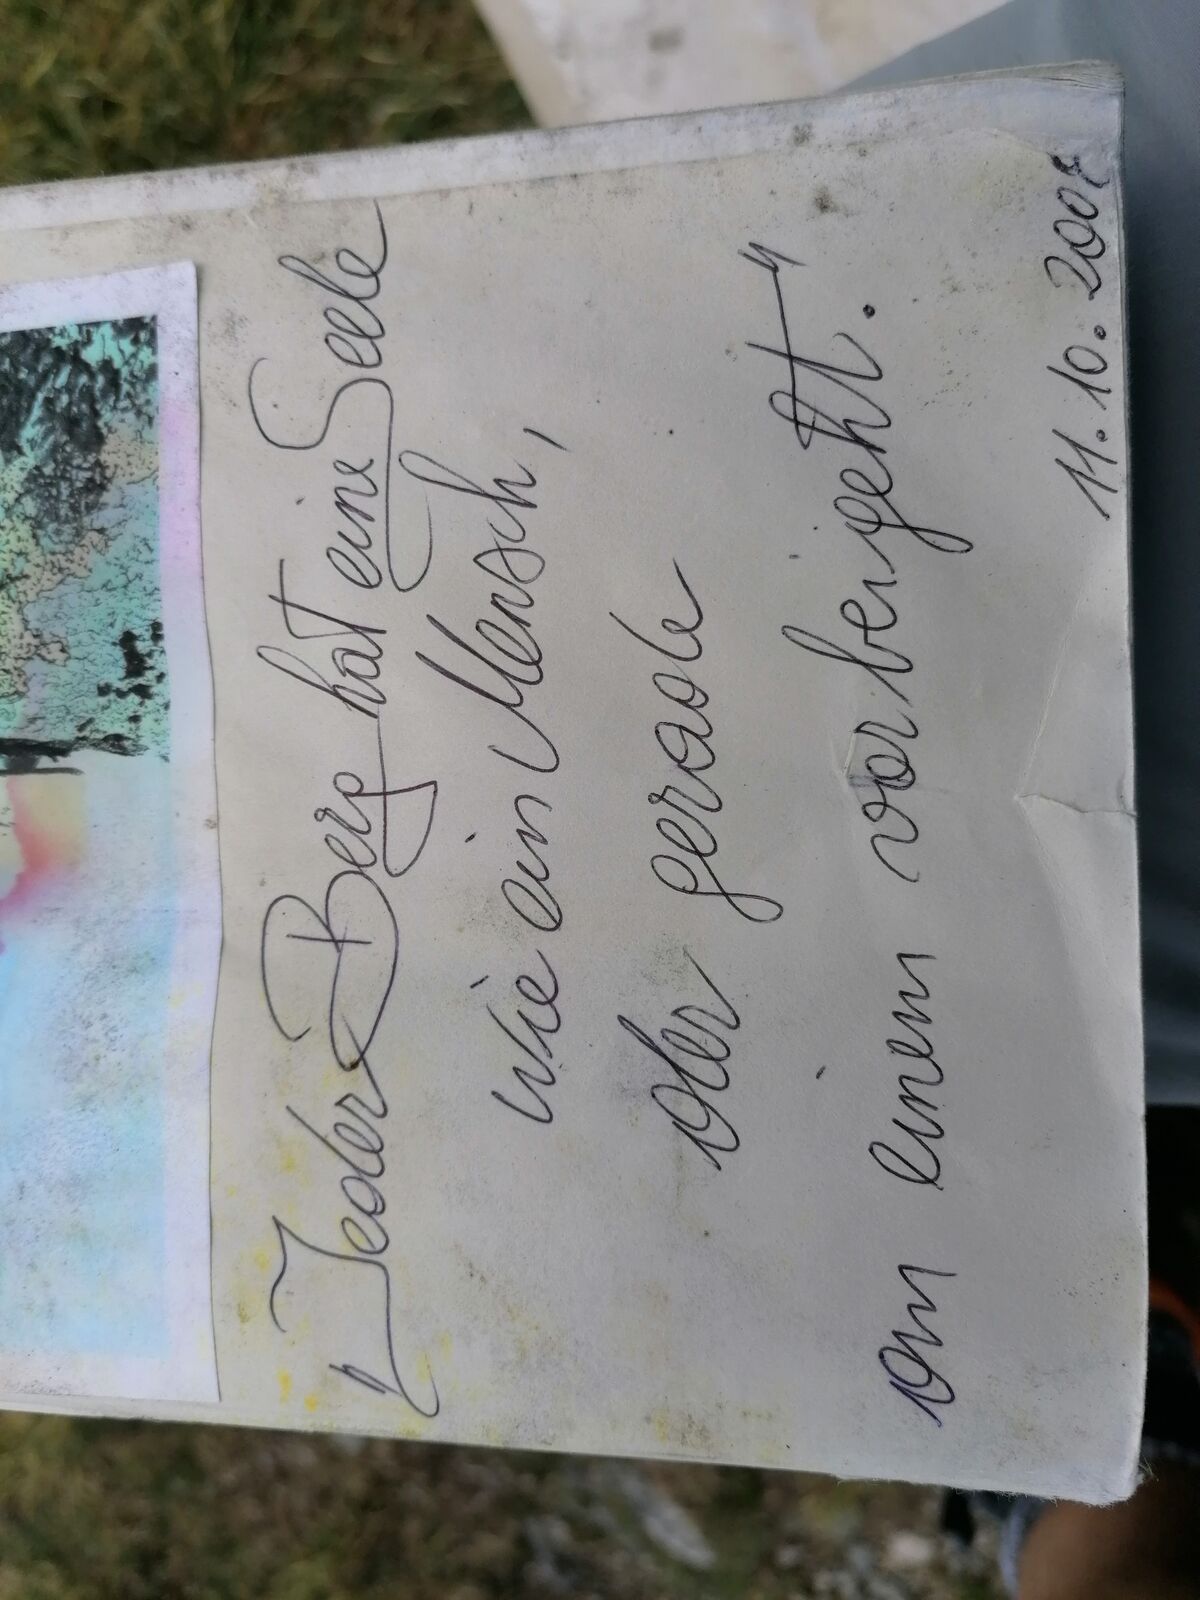 "Jeder Berg hat eine Seele
wie ein Mensch,
der gerade
an einem vorbeigeht."
11.10.2007